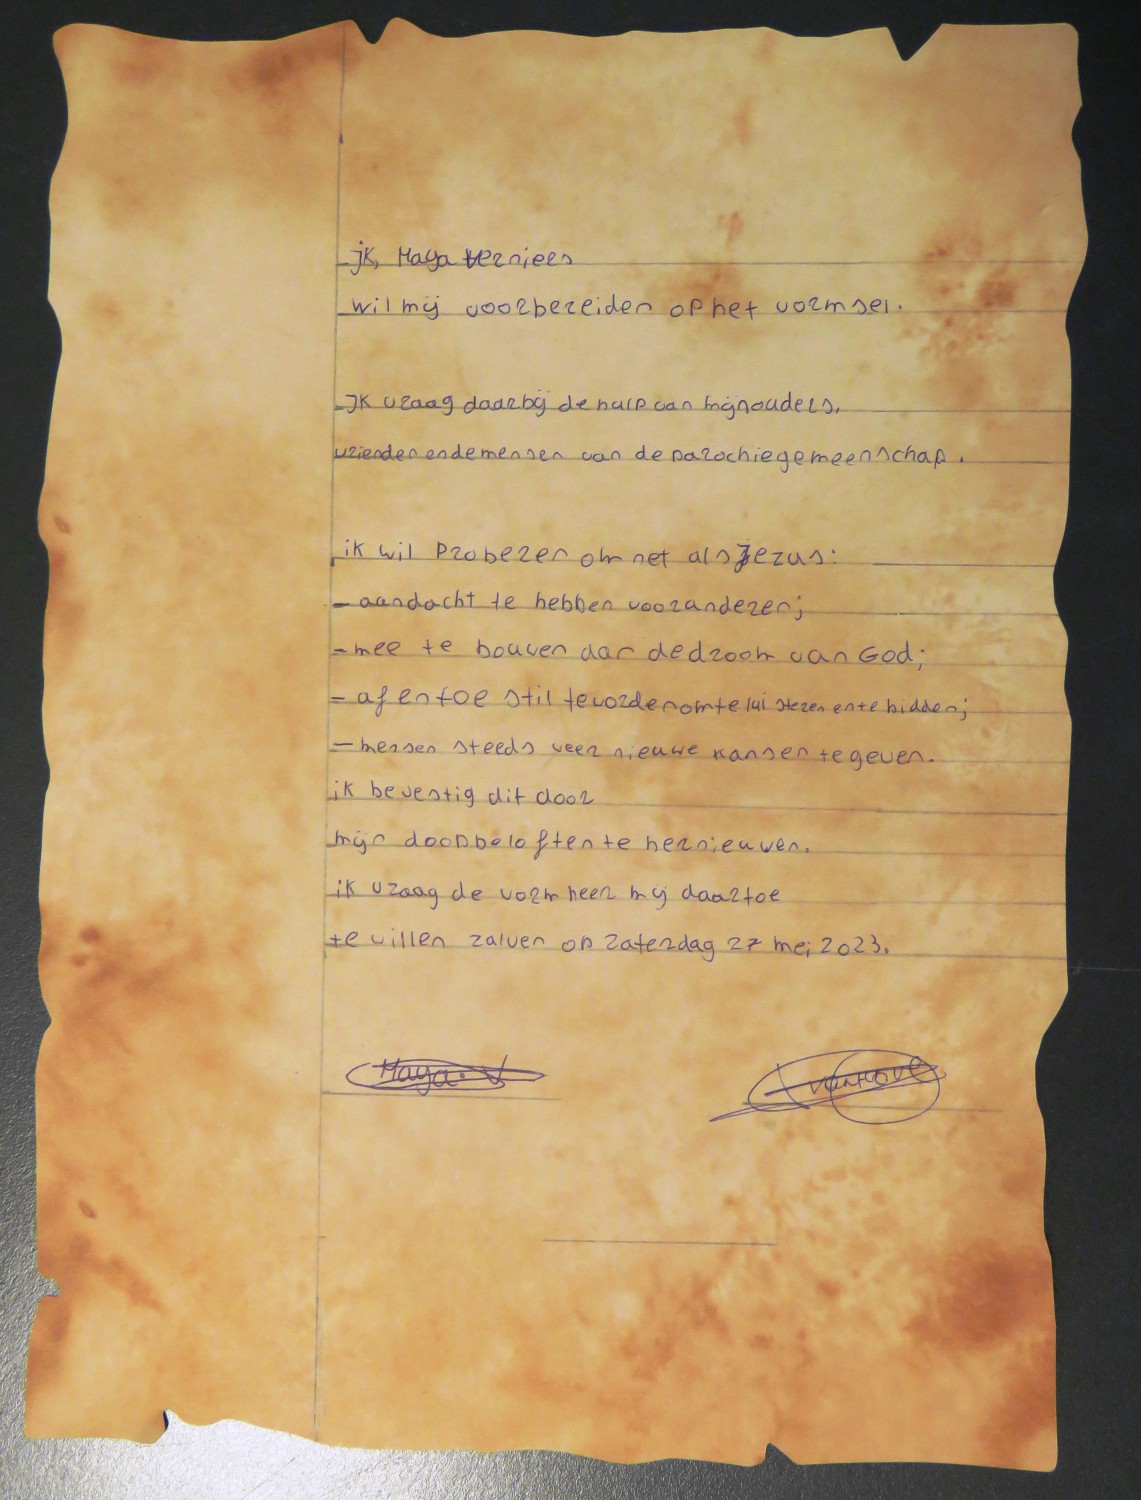 ik, Maya verniers
wil mij voorbereiden op het vormsel.
Ik vraag daarbij de hulp van mijn ouders,
vrienden en de mensen van de parochiegemeenschap.
ik wil proberen om net als Jezus:
- aandacht te hebben voor anderen;
- mee te bouwen aan de droom van God;
- af en toe stil te worden om te luisteren en te bidden;
- mensen steeds weer nieuwe kansen te geven.
ik bevestig dit door
mijn doopbeloften te hernieuwen.
ik vraag de vormheer mij daartoe
te willen zalven op zaterdag 27 mei 2023.
Maya. V